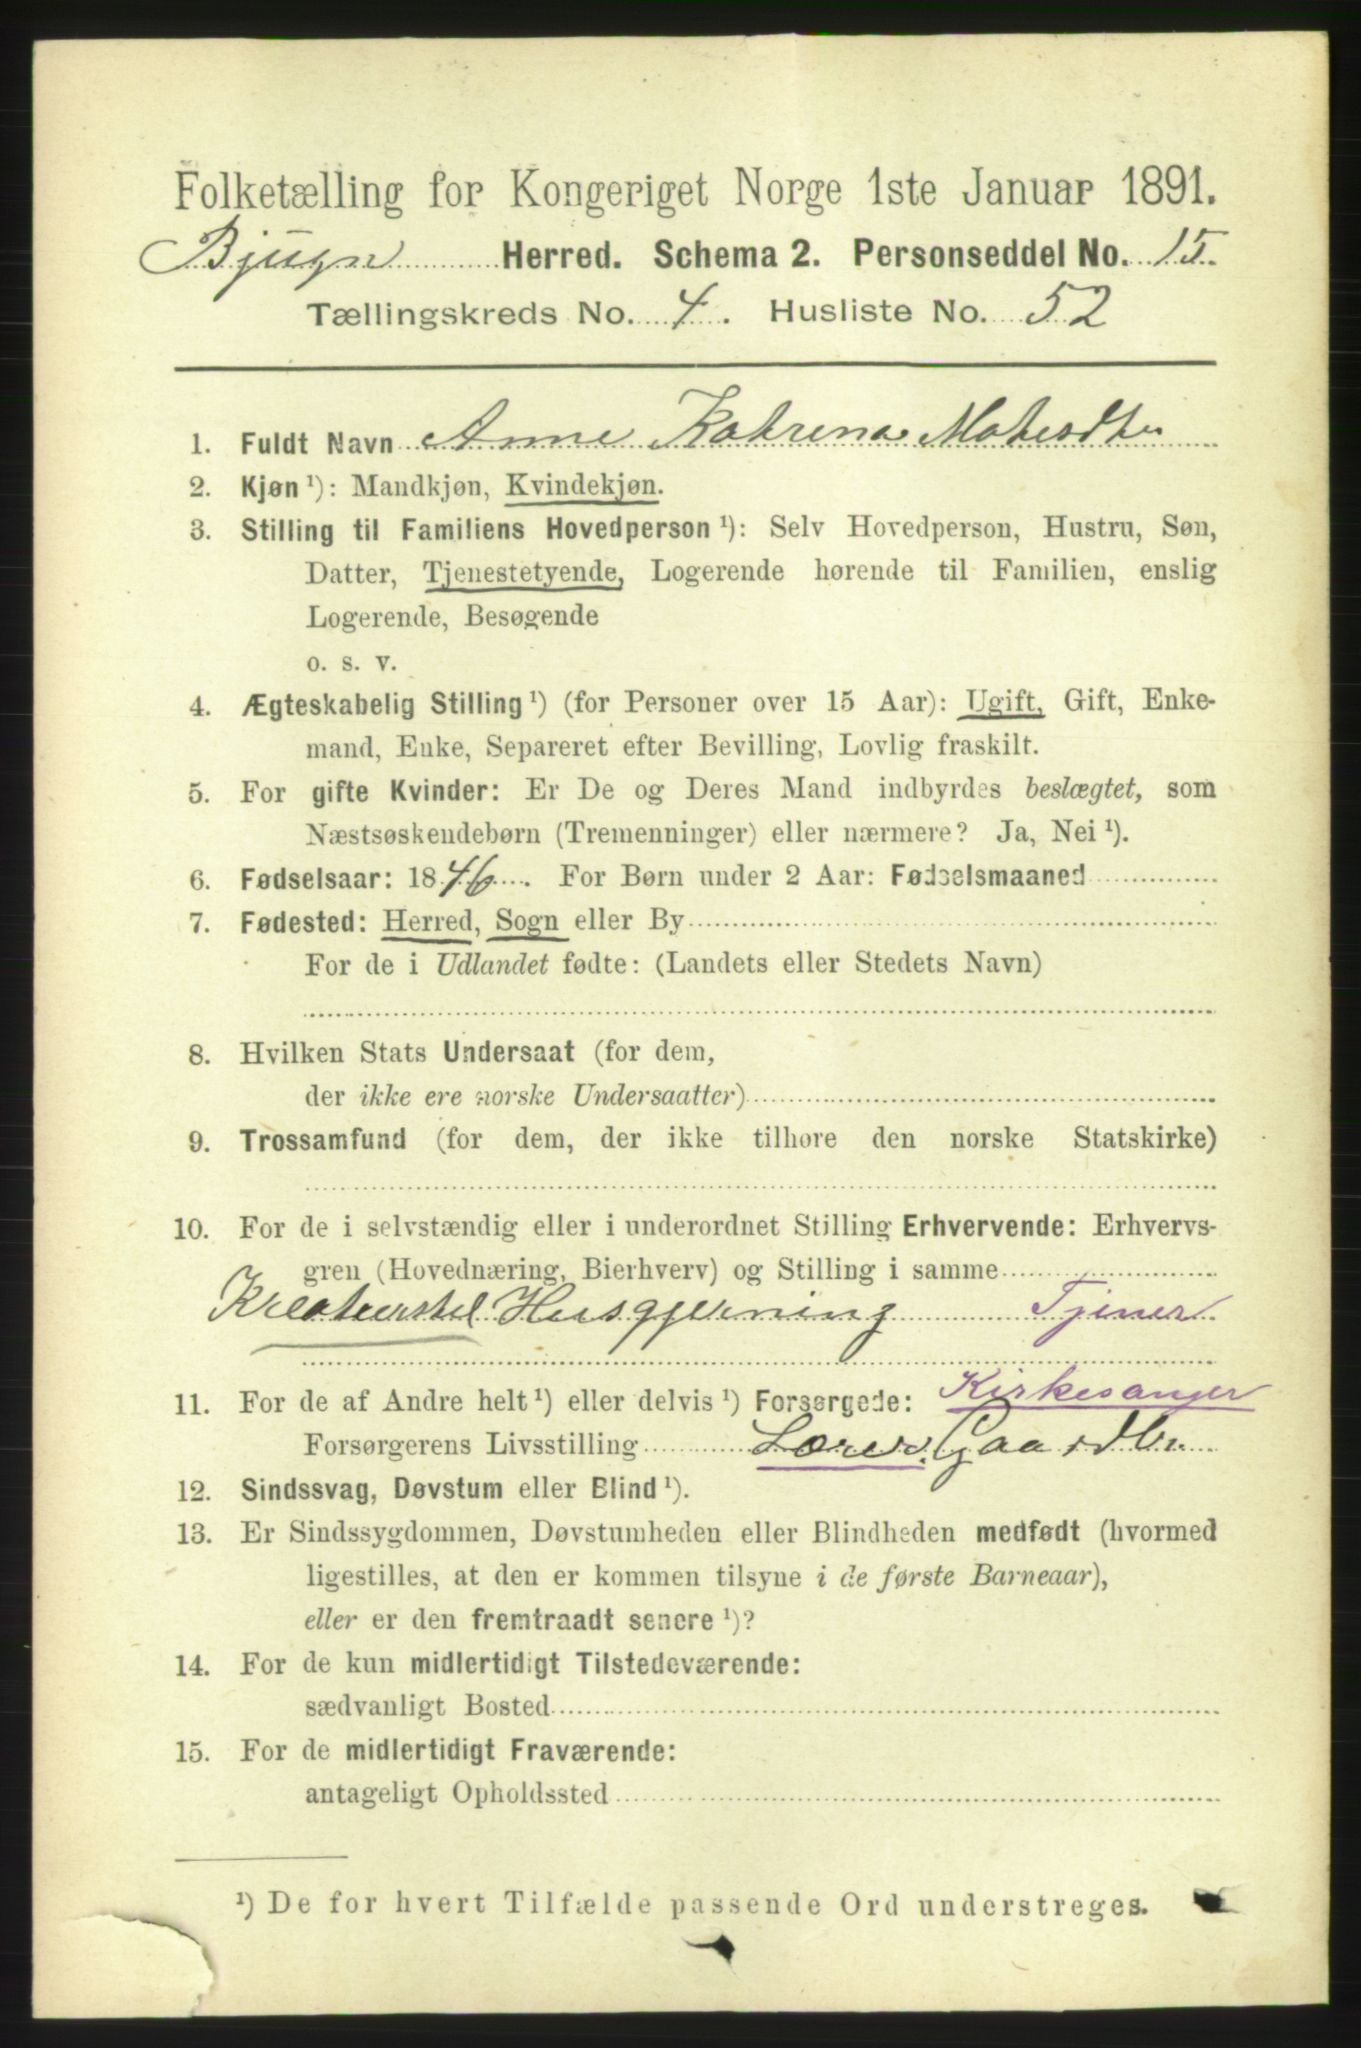 Folketælling for Kongeriget Norge 1ste Januar 1891.
Bjugn Herred. Schema 2. Personseddel No. 15.
Tællingskreds No. 4. Husliste No. 52
1. Fuldt Navn Anne Katrina
2. Kjøn ¹): Mandkjøn, Kvindekjøn.
3. Stilling til Familiens Hovedperson ¹): Selv Hovedperson, Hustru, Søn,
Datter, Tjenestetyende, Logerende hørende til Familien, enslig
Logerende, Besøgende
o. s. v.
4. Ægteskabelig Stilling ¹) (for Personer over 15 Aar): Ugift, Gift, Enke-
mand, Enke, Separeret efter Bevilling, Lovlig fraskilt.
5. For gifte Kvinder: Er De og Deres Mand indbyrdes beslægtet, som
Næstsøskendebørn (Tremenninger) eller nærmere? Ja, Nei ¹).
6. Fødselsaar: 1846. For Børn under 2 Aar: Fødselsmaaned
7. Fødested: Herred, Sogn eller By
For de i Udlandet fødte: (Landets eller Stedets Navn)
8. Hvilken Stats Undersaat (for dem,
der ikke ere norske Undersaatter)
9. Trossamfund (for dem, der ikke tilhøre den norske Statskirke)
10. For de i selvstændig eller i underordnet Stilling Erhvervende: Erhvervs-
gren (Hovednæring, Bierhverv) og Stilling i samme
Kreaturstel Husgjerning Tjener
11. For de af Andre helt ¹) eller delvis ¹) Forsørgede: Kirkesanger
Forsørgerens Livsstilling Lærer. Gaardbr.
12. Sindssvag, Døvstum eller Blind ¹).
13. Er Sindssygdommen, Døvstumheden eller Blindheden medfødt (hvormed
ligestilles, at den er kommen tilsyne i de første Barneaar),
eller er den fremtraadt senere ¹)?
14. For de kun midlertidigt Tilstedeværende:
sædvanligt Bosted
15. For de midlertidigt Fraværende:
antageligt Opholdssted
¹) De for hvert Tilfælde passende Ord understreges.